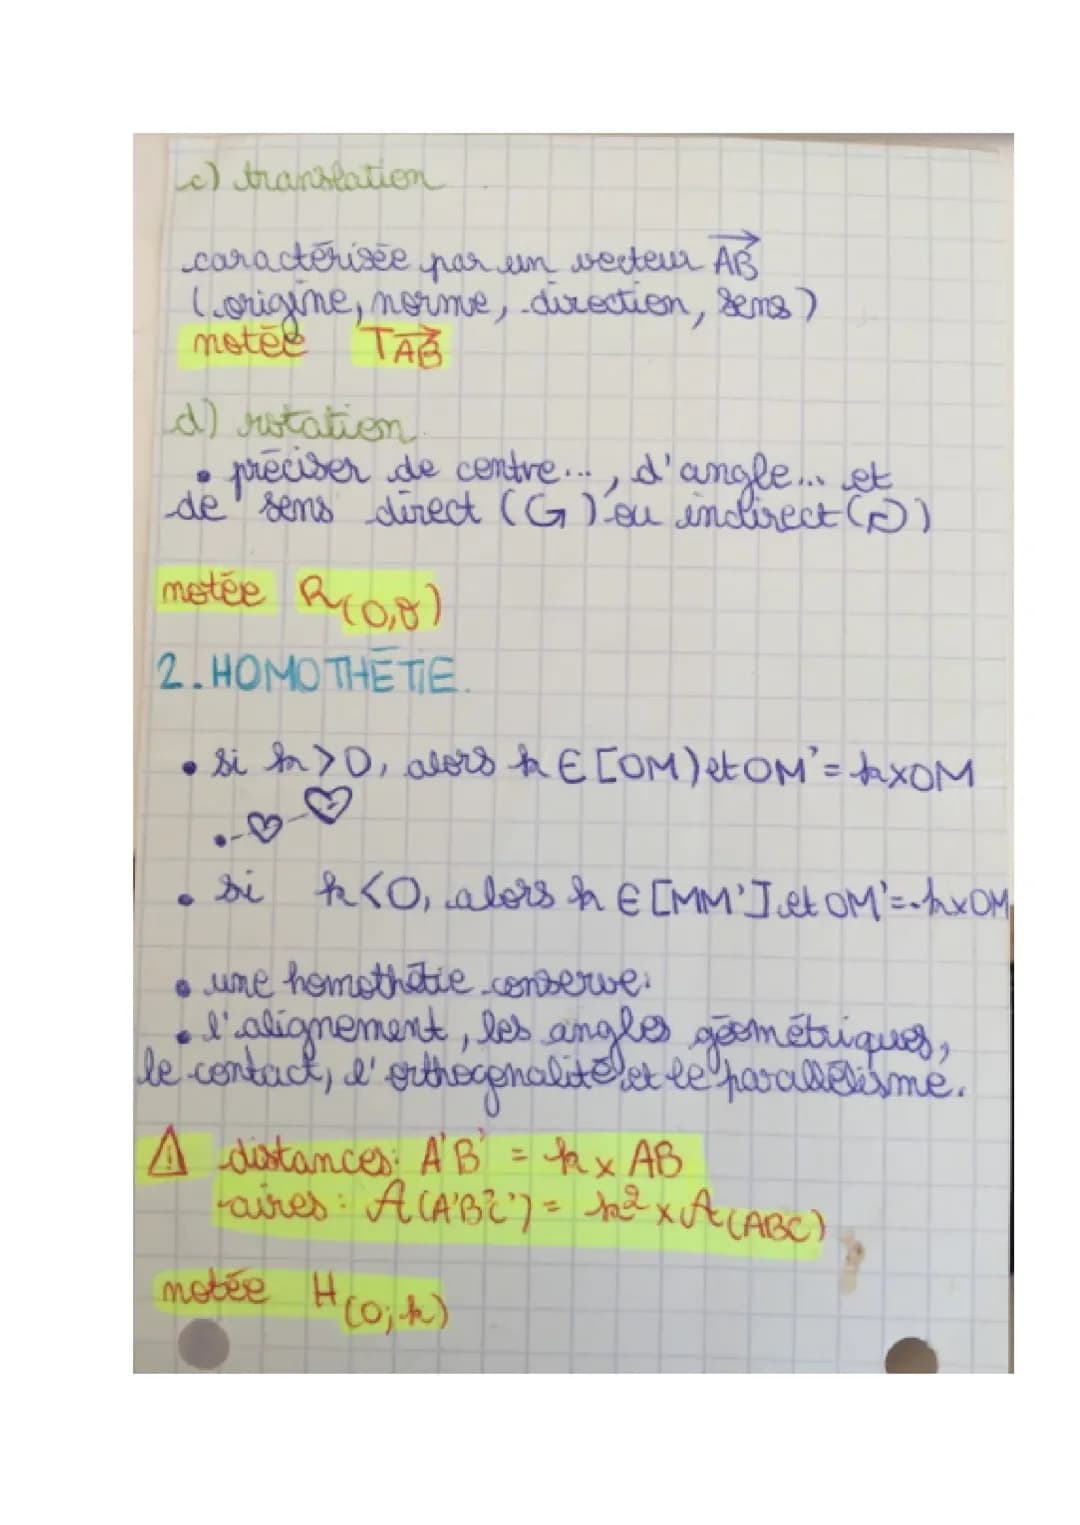 c) translation
caractérisée par un vecteur AB
(origine, norme, direction, sens)
notée TAB
d) rotation
• préciser de centre..., d'angle... et
de sens direct (↺) ou indirect (↻)
notée R(O,γ)
2. HOMOTHÉTIE.
• si k>0, alors k ∈ [OM) et OM' = k×OM
• si k<0, alors k ∈ [MM'] et OM' = -k×OM
• une homothétie conserve:
• l'alignement, les angles géométriques,
le contact, l'orthogonalité et le parallélisme.
⚠ distances: A'B' = k × AB
-aires: A(A'B'C') = k² × A(ABC)
notée H(O;k)